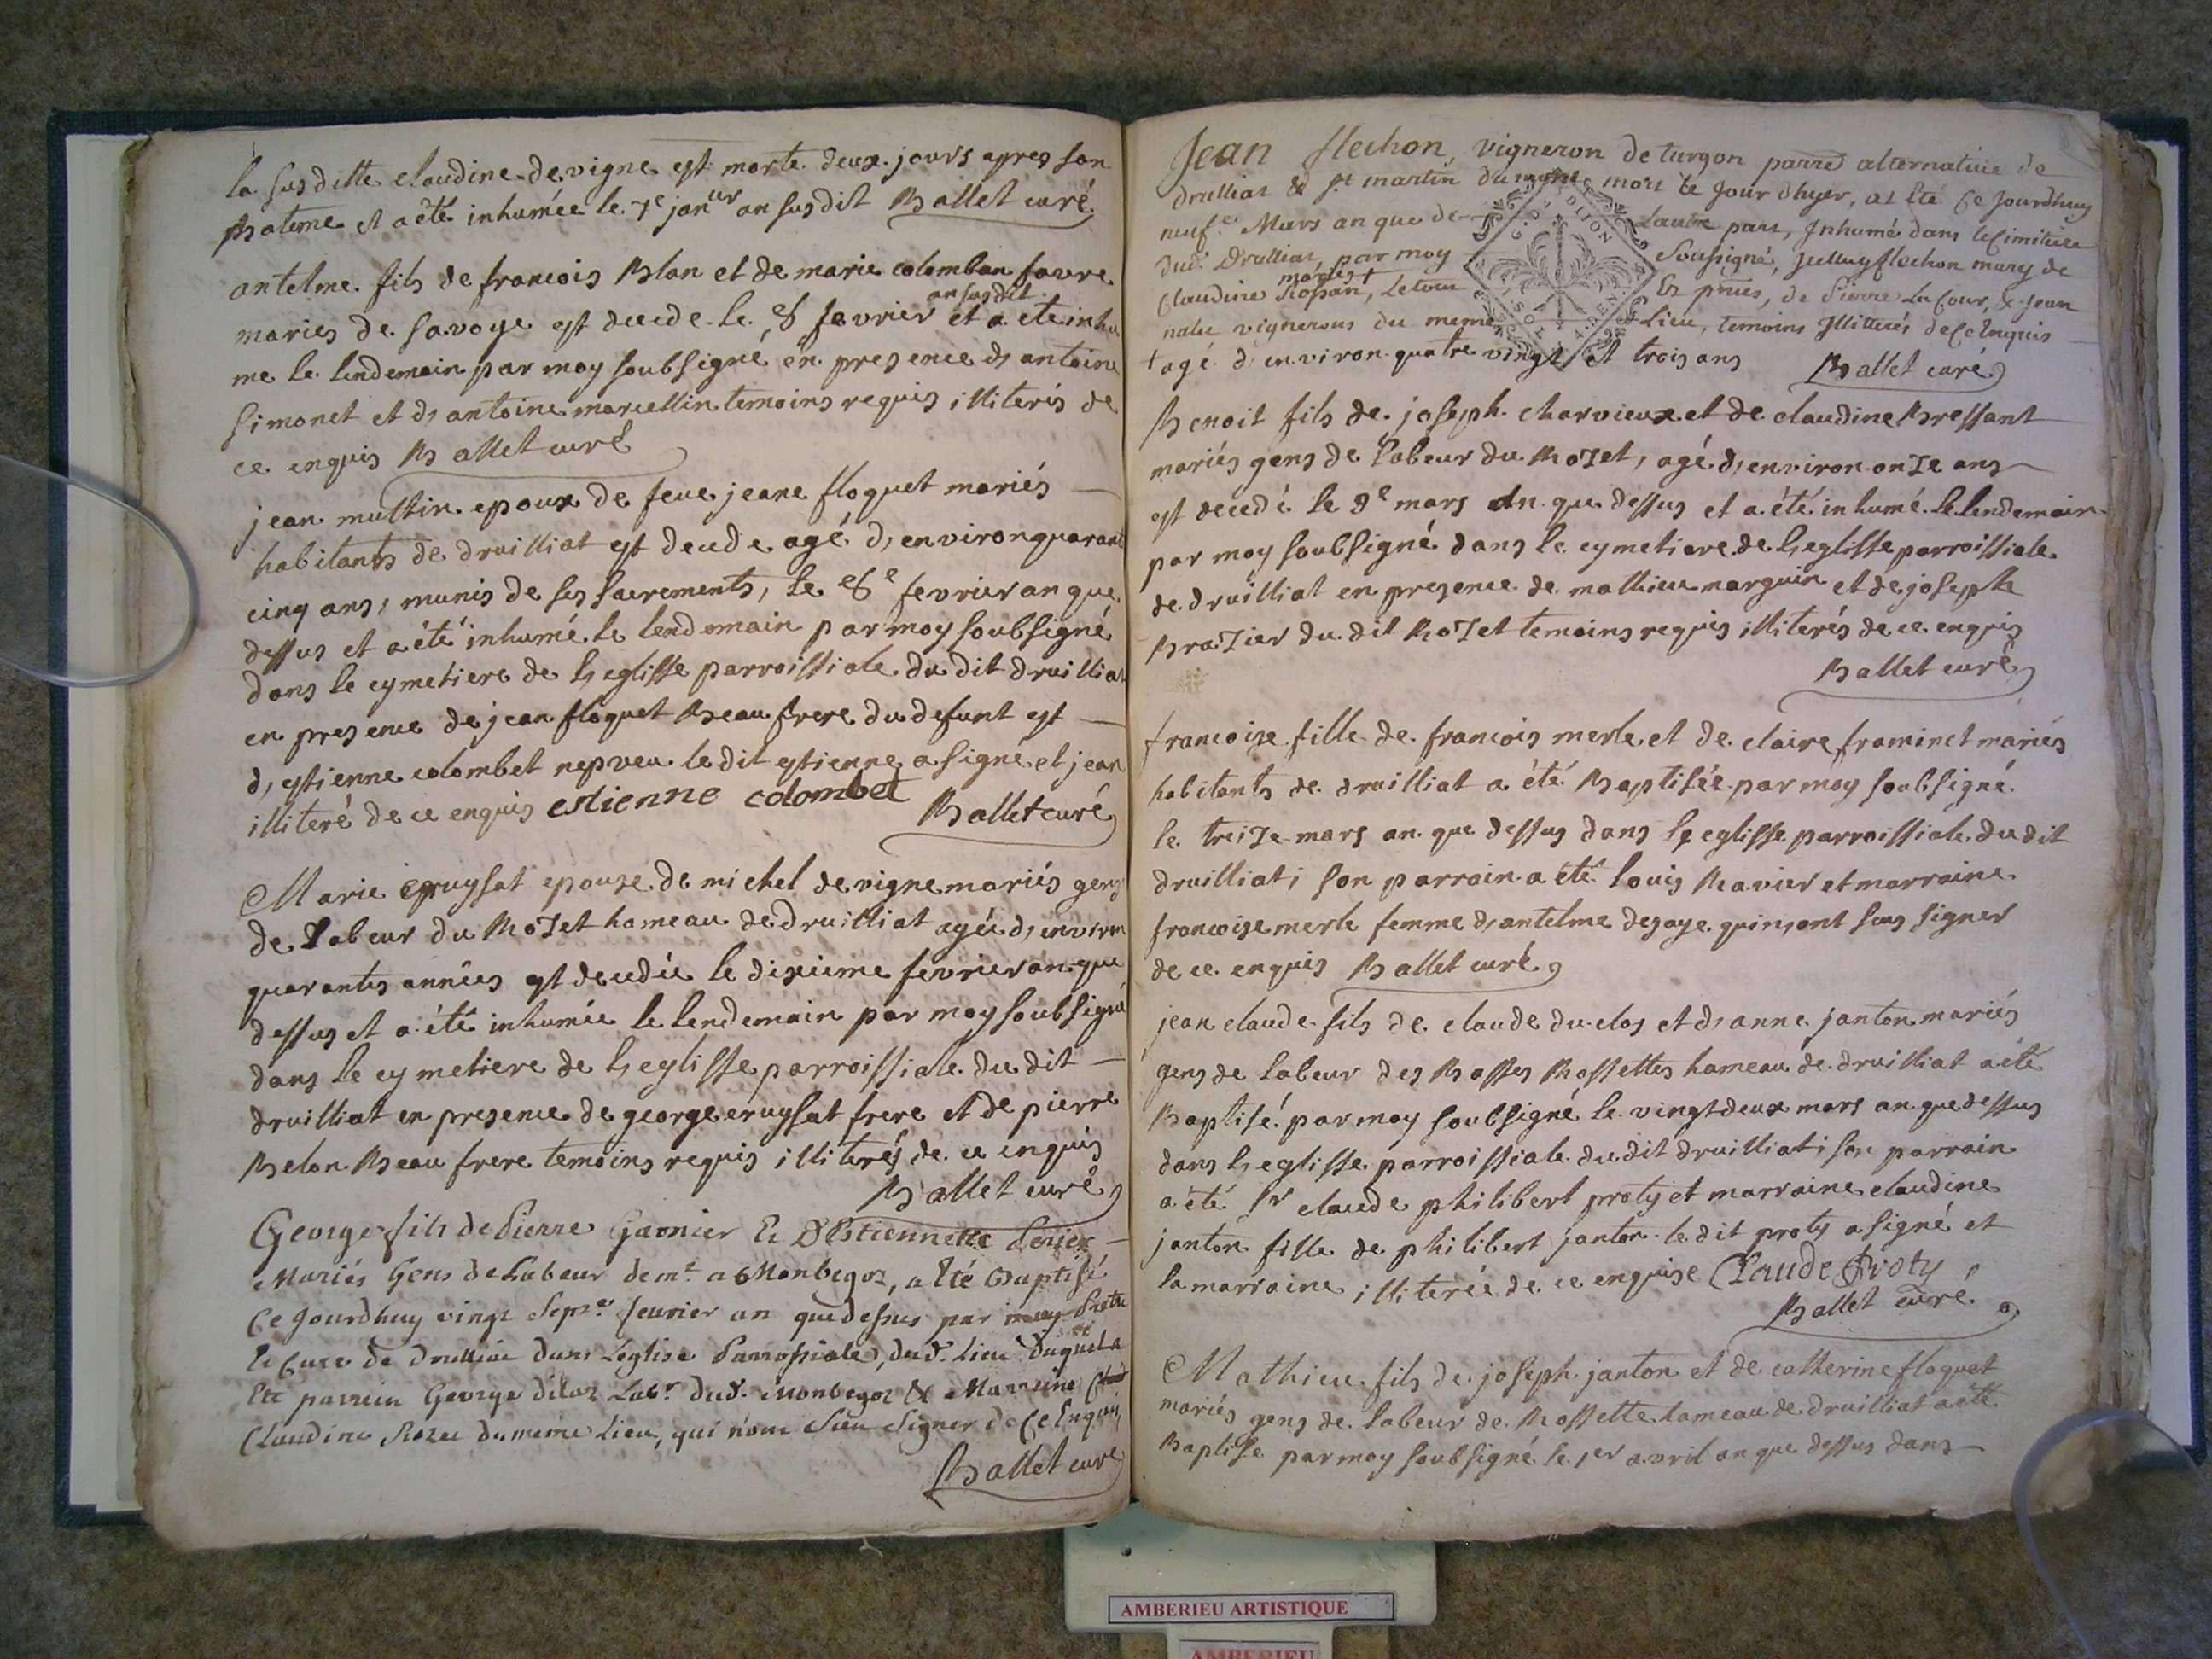 la susditte claudine devigne est morte deux jours apres son
Bateme et a été inhumée le 7e janer an susdit Ballet curé
antelme fils de francois Blan et de marie colomban favre
mariés de savoye est decede le 8 fevrier an susdit et a ete inhu
me le lendemain par moy soubsigné en presence d, antoine
simonet et d, antoine marcellin temoins requis illiterés de
ce enquis Ballet curé
jean multin epoux de feue jeane floquet mariés
habitants de druilliat est decede agé d, environ quarante
cinq ans, munis de ses sacrements, le 8e fevrier an que
dessus et a été inhumé le lendemain par moy soubsigné
dans le cymetiere de l, eglisse parroissiale du dit druilliat
en presence de jean floquet Beau frere du defunt et
d, estienne colombet nepveu le dit estienne a signé et jean
illiteré de ce enquis estienne colombet Ballet curé
Marie cruysat epouze de michel devigne mariés gens
de Labeur du Rozet hameau de druilliat agée d, environ
quarantes années est decedée le dixieme fevrier an que
dessus et a été inhumée le lendemain par moy soubsigné
dans le cymetiere de l, eglisse parroissiale du dit
druilliat en presence de george cruysat frere et de pierre
Belon Beau frere temoins requis illiterés de ce enquis
Ballet curé
George fils de Pierre Garnier Et D'Estiennette Perier
Mariés Gens de Labeur demt a Monbegoz, a Eté Baptisé
Ce Jourdhuy vingt Sept fevrier an que dessus par moy Pretre
Et Curé de Druilliat dans L'eglise Parrossiale, dud. Lieu duquel a
Eté parrein George Labr dud. Monbegoz & Marreine
Claudine Rozet du meme Lieu, qui n'ont Sceu Signer de Ce Enquis
Ballet curé
Jean flechon vigneron de turgon parre alternative de
drulliat & st martin du mont, mort le Jour d'hyer, at Eté Ce Jourdhuy
neufe Mars an que de Lautre part, Inhumé dans le Cimitiere
dud. Drulliat, par moy Soussigné, flechon mary de
Claudine Rossan mariés +, Letout Et pnces, de Pierre La Cour, & Jean
nalu vignerons du meme Lieu, temoins Illitterés de Ce Enquis
+ agé d, environ quatre vingt et trois ans Ballet curé
G. DE DIJON
Benoit fils de joseph charvieux et de claudine Bressant
mariés gens de Labeur du Rozet, agé d, environ onze ans
est decedé le 9e mars an que dessus et a été inhumé le lendemain
par moy soubsigné dans le cymetiere de l, eglisse parroissiale
de druilliat en presence de mathieu marguin et de joseph
Brazier du dit Rozet temoins requis illiterés de ce enquis
Ballet curé
francoize fille de francois merle et de claire frominet mariés
habitants de druilliat a été Baptisée par moy soubsigné
le treize mars an que dessus dans l, eglisse parroissiale du dit
druilliat; son parrain a été louis Ravier et marraine
francoize merle femme d, antelme desaye qui n, ont seus signer
de ce enquis Ballet curé
jean claude fils de claude duclos et d, anne janton mariés
gens de labeur des Basses Rossettes hameau de druilliat a été
Baptisé par moy soubsigné le vingt deux mars an que dessus
dans l, eglisse parroissiale du dit druilliat; son parrain
a été sr claude philibert proty et marraine claudine
janton fille de philibert janton le dit proty a signé et
la marraine illiterée de ce enquise Claude Proty
Ballet curé
Mathieu fils de joseph janton et de catherine floquet
mariés gens de labeur de Rossette hameau de druilliat a été
Baptisse par moy soubsigné le 1er avril an que dessus dans
AMBERIEU ARTISTIQUE
AMBERIEU